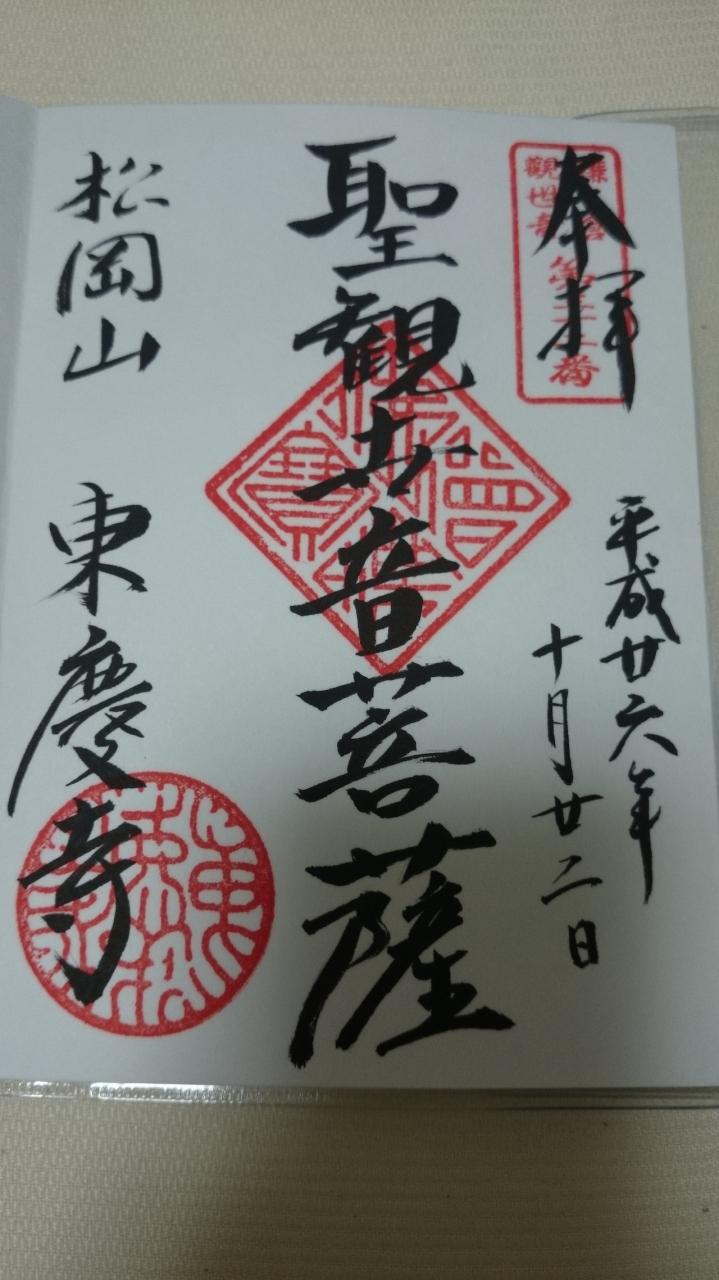 奉拝
鎌倉
観世音 第三十三番
平成廿六年
十月廿二日
聖観世音菩薩
佛法僧寶
松岡山 東慶寺